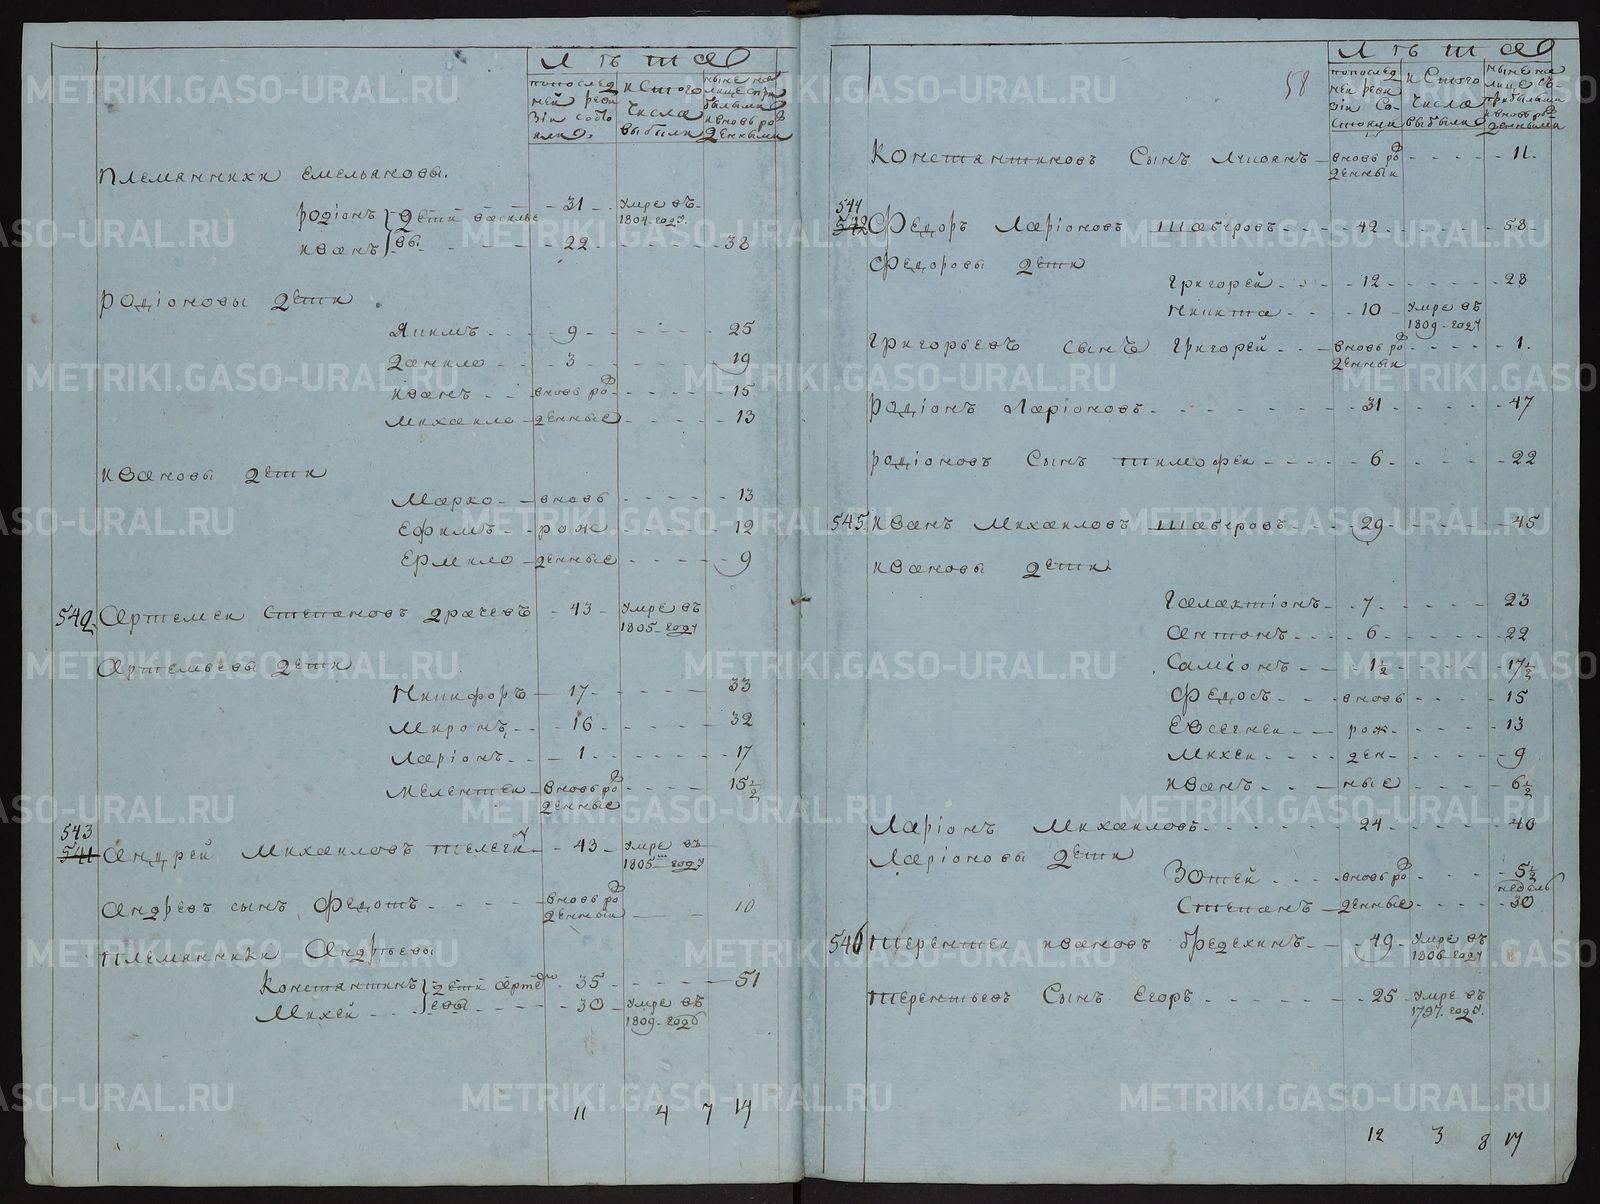 Лѣта
попослед
ней реви
зіи состо
яли
исъ того
числа
выбыли
ныне на
лице спри
былыми
и вновь ро
жденными
Племянники Емельяновы.
Родіонъ дети васильевы 31 умре въ 1804. году.
иванъ 22 38
Родіоновы дети
Якимъ 9 25
данило 3 19
иванъ вновь ро 15
михаило жденные 13
ивановы дети
Марко вновь 13
Ефимъ рож 12
Ермило денные 9
542 Артемеи Степановъ драчевъ 43 умре въ 1805 году
Артемьевы дети
Никифоръ 17 33
Миронъ 16 32
Ларіонъ 1 17
мелентеи вновь ро жденные 15½
543
541 Андрей Михаиловъ телеги 43 умре въ 1805 году
Андревъ сынъ Федотъ вновь ро жденныи 10
Племянники Андрьевы
Константинъ дети 35 51
Михеи 30 умре въ 1809 году
11 4 7 14
58
Лѣта
попослед
ней реви
зіи со
стояли
исъ того
числа
выбыли
ныне на
лице съ
прибылыми
и вновь ро
жденными
Константиновъ Сынъ вновь ро жденныи 11.
544
542 Федоръ Ларіоновъ шабуровъ 42 58
Федоровы дети
Григорей 12 28
Никита 10 умре въ 1809 году
Григорьевъ сынъ Григорей вновь ро жденныи 1.
Родіонъ Ларіоновъ 31 47
родіоновъ Сынъ тимофеи 6 22
545. иванъ Михаиловъ шабуровъ 29 45
ивановы дети
Галактіонъ 7 23
Антонъ 6 22
Самсонъ 1½ 17½
Федосъ вновь 15
Евсегнеи рож 13
Михеи ден 9
иванъ ные 6½
Ларіонъ Михаиловъ 24 40
Ларіоновы дети
Зотеи вновь ро 5½
недель
Степанъ жденные 30
546 терентеи ивановъ бредихинъ 49 умре въ 1806 году
терентьевъ Сынъ Егоръ 25 умре въ 1797. году.
12 3 8 17
METRIKI.GASO-URAL.RU